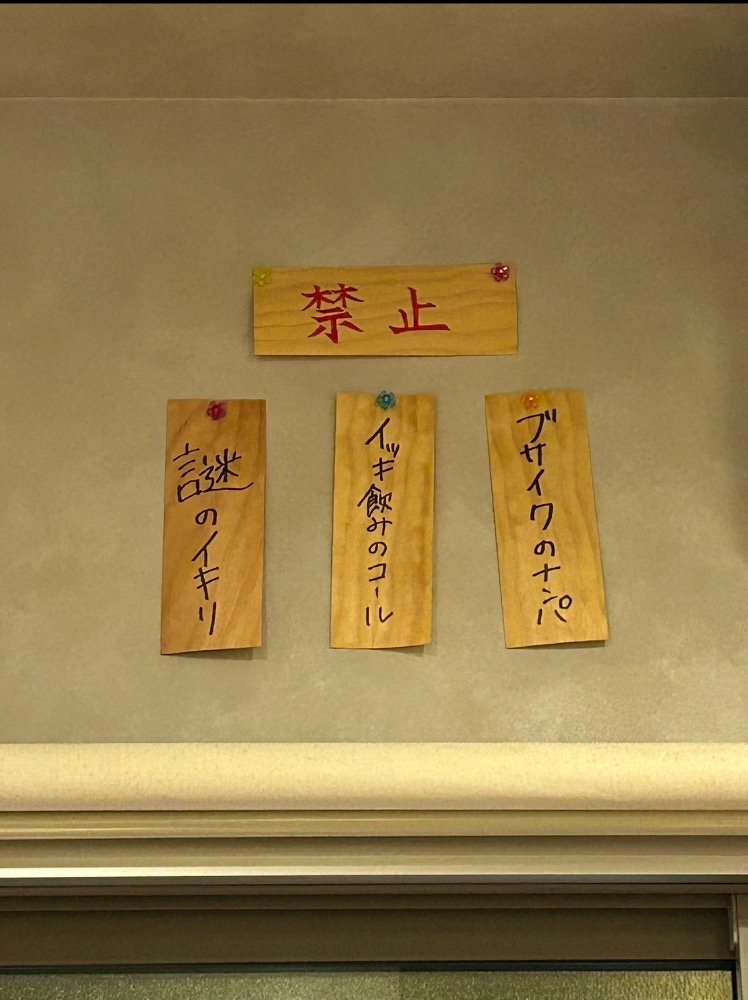 禁止
ブサイクのナンパ
イッキ飲みのコール
謎のイキリ